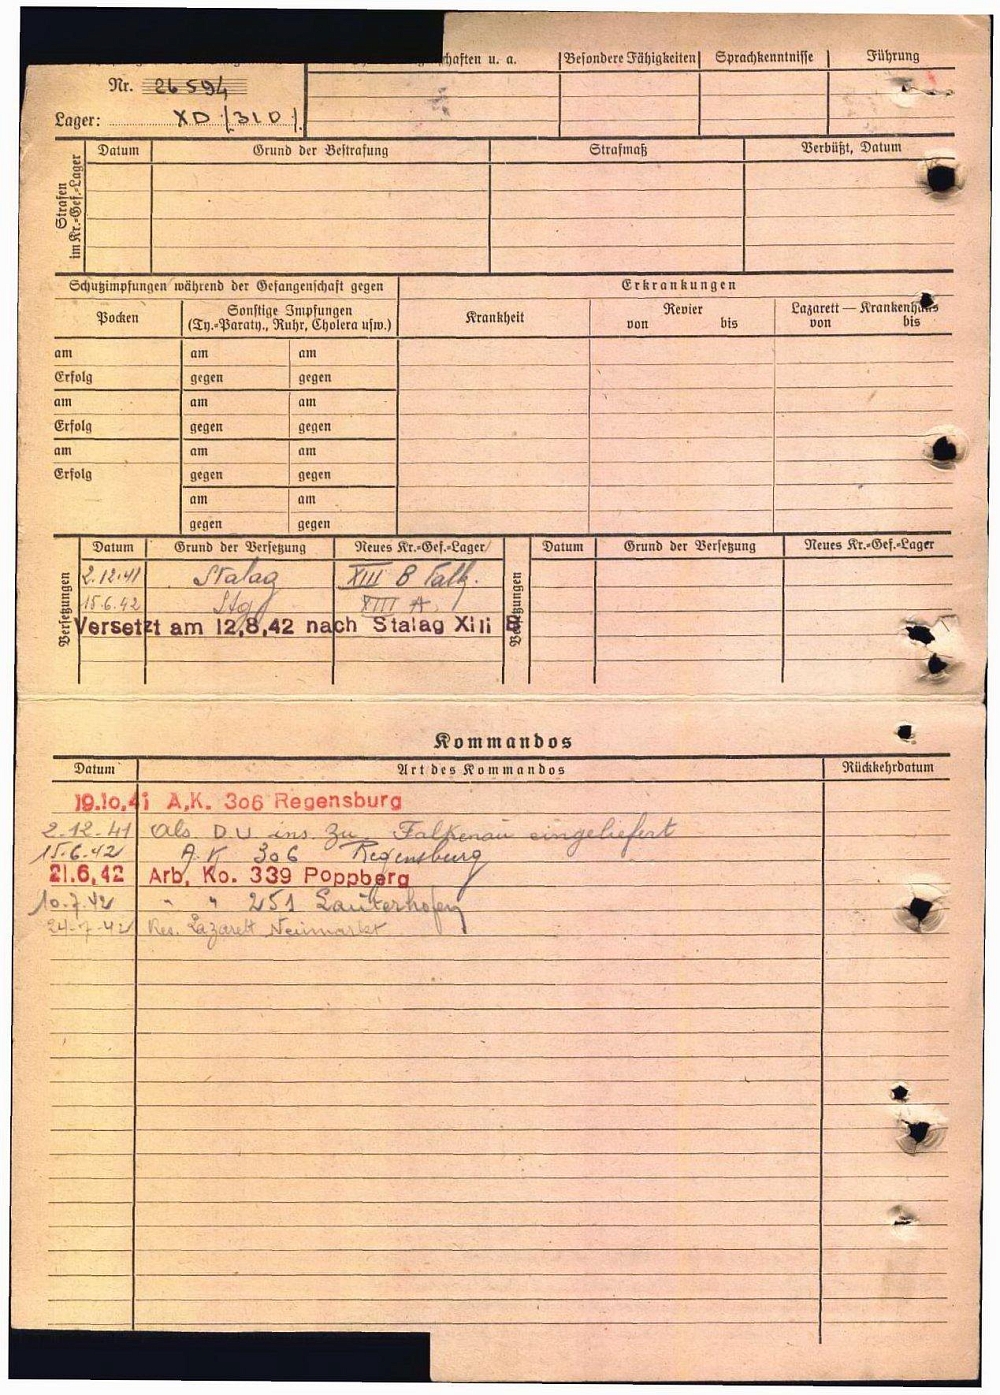 haften u. a. Besondere Fähigkeiten Sprachkenntnisse Führung
Nr. 26594
Lager: XD (310).
Strafen im Kr.-Gef.-Lager
Datum Grund der Bestrafung Strafmaß Verbüßt, Datum
Schutzimpfungen während der Gefangenschaft gegen Erkrankungen
Pocken Sonstige Impfungen Krankheit Revier Lazarett — Krankenhaus
(Ty.-Paraty., Ruhr, Cholera usw.) von bis von bis
am am am
Erfolg gegen gegen
am am am
Erfolg gegen gegen
am am am
Erfolg gegen gegen
am am
gegen gegen
Versetzungen
Datum Grund der Versetzung Neues Kr.-Gef.-Lager Datum Grund der Versetzung Neues Kr.-Gef.-Lager
Versetzungen
2.12.41 Stalag XIII B Falk.
15.6.42 Stg XIII A.
Versetzt am 12,8,42 nach Stalag XIII
Kommandos
Datum Art des Kommandos Rückkehrdatum
19.10.41 A.K. 306 Regensburg
2.12.41 als D.U. ins. zu Falkenau eingeliefert
15.6.42 A.K 306 Regensburg
21.6,42 Arb, Ko. 339 Poppberg
10.7.42 " " 251 Lauterhofen
24-7-42 Res. Lazarett Neumarkt